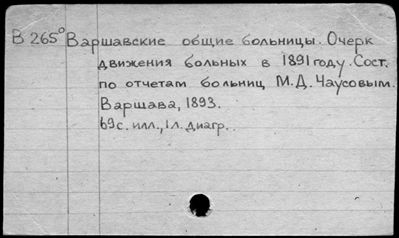 В 265° Варшавские общие больницы. Очерк
движения больных в 1891 году. Сост.
по отчетам больниц М.Д. Чаусовым.
Варшава, 1893.
69 с. илл., 1 л. диагр.